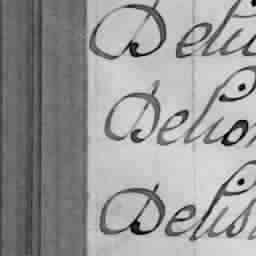 Deli
Delion
Delis